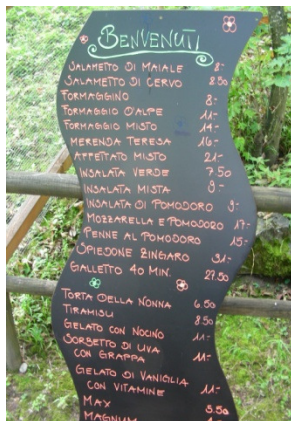 BENVENUTI
SALAMETTO DI MAIALE 8.-
SALAMETTO DI CERVO 8.50
FORMAGGINO 8.-
FORMAGGIO D'ALPE 11.-
FORMAGGIO MISTO 14.-
MERENDA TERESA 16.-
AFFETTATO MISTO 21.-
INSALATA VERDE 7.50
INSALATA MISTA 9.-
INSALATA DI POMODORO 9.-
MOZZARELLA E POMODORO 17.-
PENNE AL POMODORO 15.-
SPIEDONE ZINGARO 31.-
GALLETTO 40 MIN. 27.50
TORTA DELLA NONNA 6.50
TIRAMISU 8.50
GELATO CON NOCINO 11.-
SORBETTO DI UVA
CON GRAPPA 11.-
GELATO DI VANIGLIA
CON VITAMINE 11.-
MAX 5.50
MAGNUM